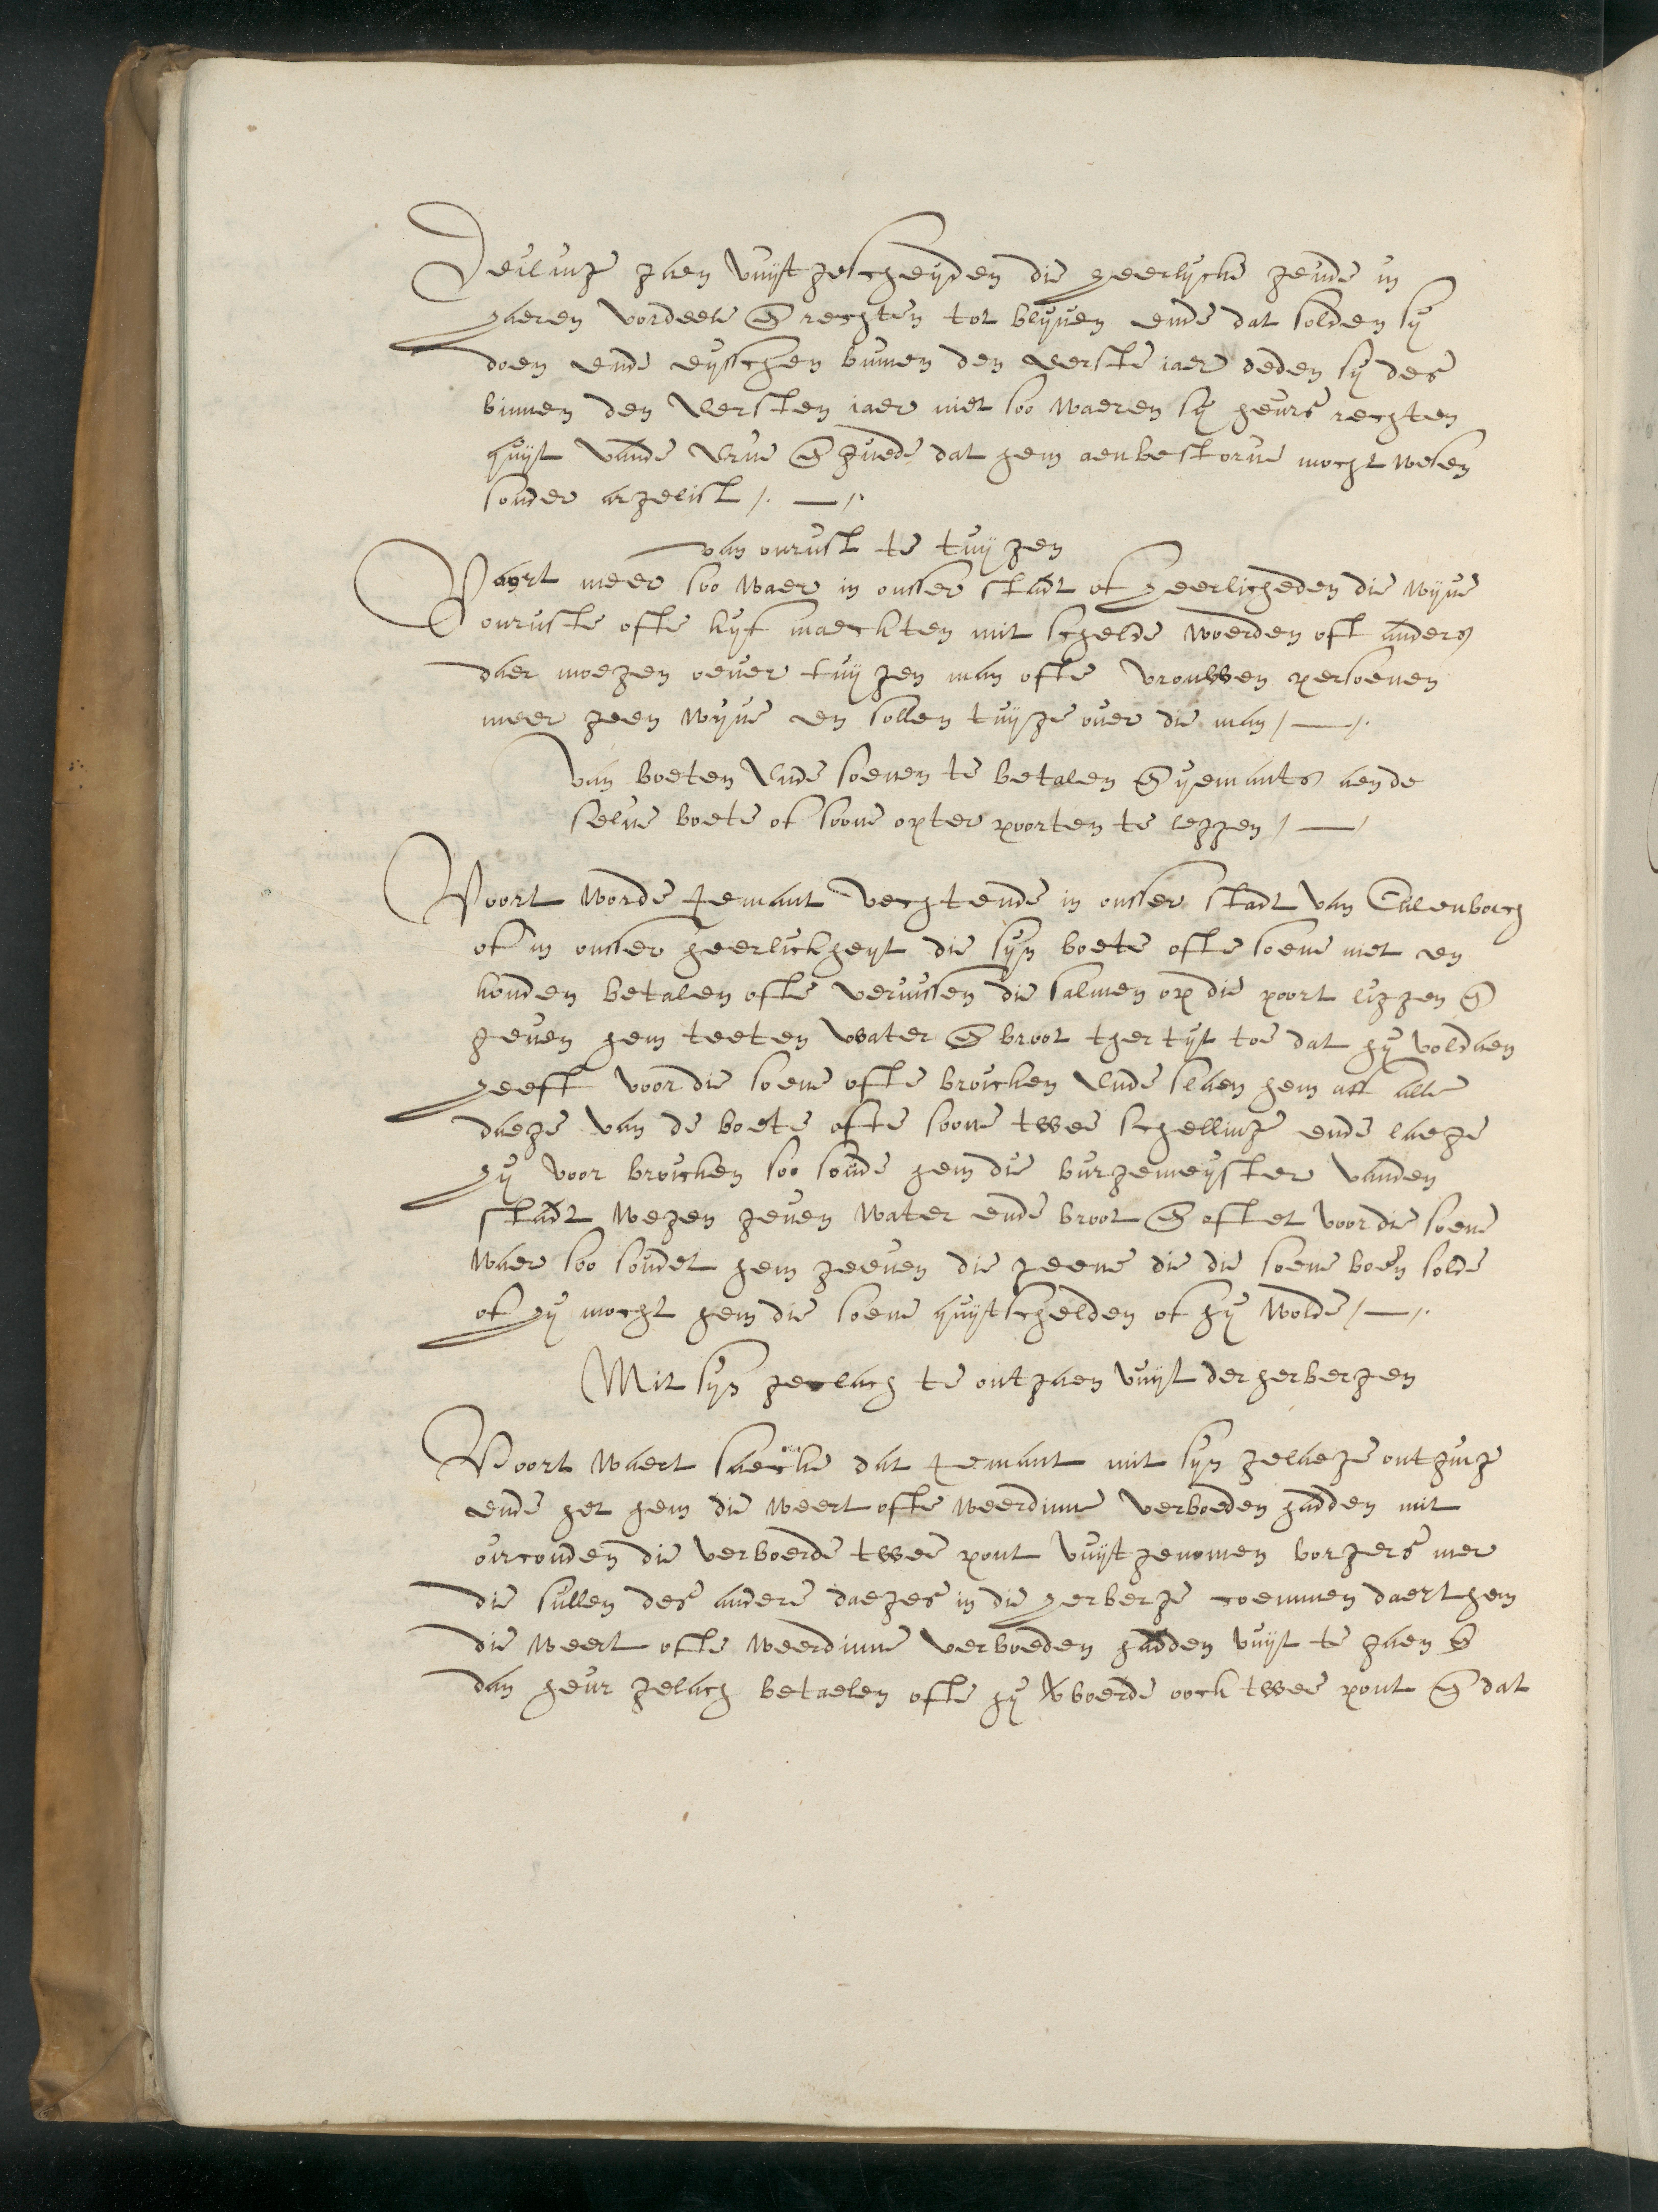 Deilinge gaen vuijtgescheijden die heerlycke gemde in
haeren vordeele en rechten tot blyuen ende dat solden sy
doen ende eijsschen binnen den eerste iaer deden sy des
binnen den Eersten iaer niet soo waeren sy heurs rechten
quijt vande Erue en guede dat hem aenbestorue mocht wesen
sonder argelist /. — /.
van onrust te tuijgen
Vaort meer soo waer in onser stadt of Heerlicheden die wijue
onruste ofte kyf maeckten mit schelde woerden oft anders
daer moegen oeuer tuijgen man ofte vrouwen persoenen
meer geen wyue en sollen tuijge ouer die man / — /.
Van boeten Ende soenen te betalen en yemants aende
selue boete of soone opter poorten te leggen / — /
Voort worde yemant vechtende in onser stadt van Culenborch
of in onser heerlickheyt die syn boete ofte soene niet en
konden betalen ofte verwissen die salmen op die poort liggen en
geuen hem teeten water en broot ther tijt toe dat hy voldaen
heeft voor die soene ofte broicken Ende slaen hem aff alle
daege van de boete ofte soone twee schellinge ende laege
hy voor broicken soo soude hem die burgemeyster vanden
stadt wegen geuen water ende broot en oftet voor die soene
waer soo soudet hem geeuen die geene die die soene boen solde
of hy mocht hem die soene quijtschelden of hy wolde / — /.
Mit syn gelach te ontgaen vuyt der herbergen
Voort waert saecke dat yemant mit syn gelaege ontginge
ende het hem die weert ofte weerdinne verboeden hadden mit
oirconden die verboerde twee pont vuijtgenomen borgers mer
die sullen des andere daeges in die herberge coemmen daert hem
die weert ofte weerdinne verboeden hadden vuijt te gaen en
dan heur gelach betaelen ofte hy verboerde oock twee pont en dat